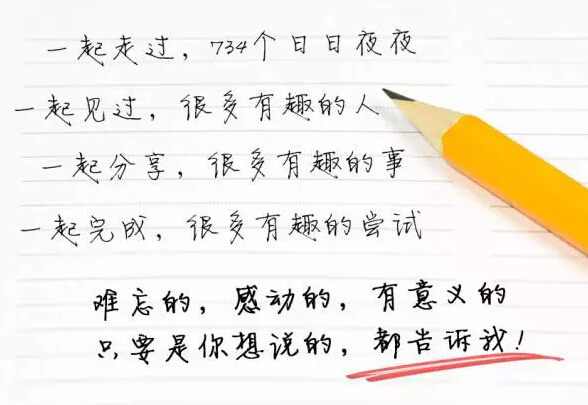 一起走过，734个日日夜夜
一起见过，很多有趣的人
一起分享，很多有趣的事
一起完成，很多有趣的尝试
难忘的，感动的，有意义的
只要是你想说的，都告诉我！